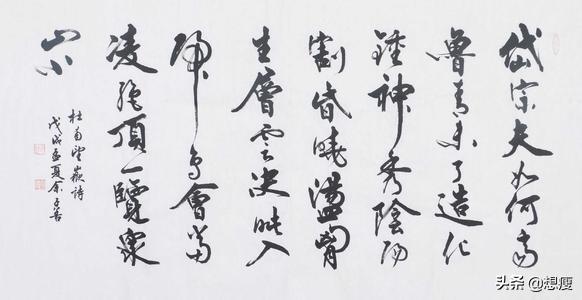 岱宗夫如何齊
魯青未了造化
鍾神秀陰陽
割昏曉盪胸
生層云決眥入
歸鳥會當
凌絕頂一覽眾
山小
杜甫望嶽詩
戊戌孟夏
头条 @想瘦